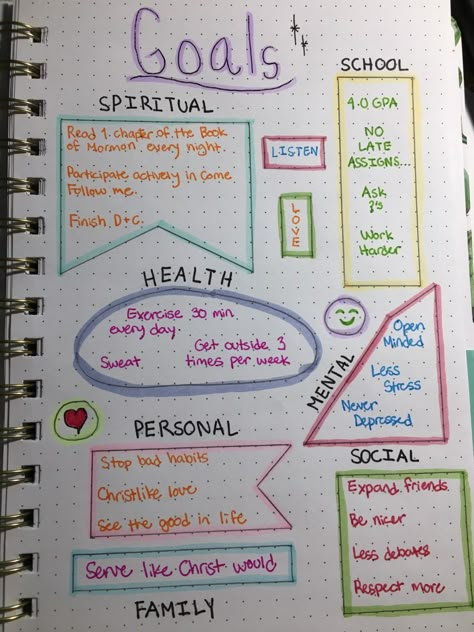 Goals
SPIRITUAL
Read 1 chapter of the Book
of Mormon every night.
Participate actively in Come
Follow me.
Finish D+C.
LISTEN
LOVE
SCHOOL
4.0 GPA
NO
LATE
ASSIGNS...
Ask
?'s
Work
Harder
HEALTH
Exercise 30 min
every day
Get outside 3
times per week
Sweat
MENTAL
Open
Minded
Less
Stress
Never
Depressed
PERSONAL
Stop bad habits
Christlike love
See the good in life
SOCIAL
Expand friends
Be nicer
Less debates
Respect more
Serve like Christ would
FAMILY